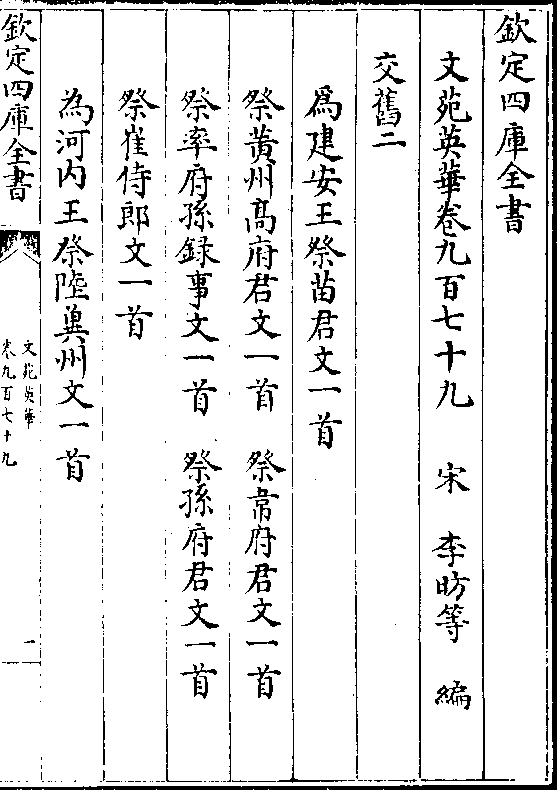 欽定四庫全書
文苑英華卷九百七十九　宋　李昉等　編
交舊二
爲建安王祭苗君文一首
祭黃州髙府君文一首　祭韋府君文一首
祭率府孫録事文一首　祭孫府君文一首
祭崔侍郎文一首
為河内王祭陸冀州文一首
欽定四庫全書
文苑英華
卷九百七十九
一